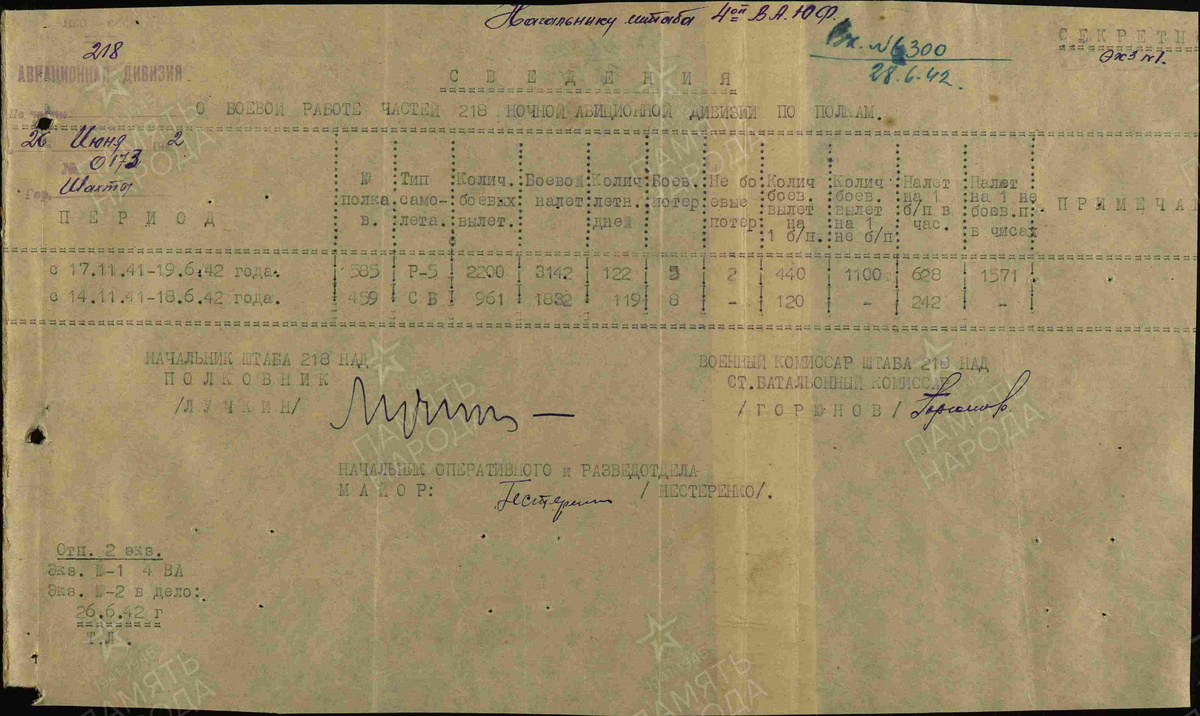 Начальнику штаба 4ой В.А. Ю.Ф.
СЕКРЕТН
Экз №1.
Вх. №6300
28.6.42.
218
АВИАЦИОННАЯ ДИВИЗИЯ
26 Июня 2
№ 0173
Гор. Шахты
СВЕДЕНИЯ
О БОЕВОЙ РАБОТЕ ЧАСТЕЙ 218 НОЧНОЙ АВИЦИОННОЙ ДИВИЗИИ ПО ПОЛКАМ.
ПЕРИОД | № полка в. | Тип само- лета. | Колич. боевых вылет. | Боевой налет | Колич летн. дней | Боев. потер | Не бо евые потер | Колич боев. вылет на 1 б/п. | Колич боев. вылет на 1 не б/п | Налет на 1 б/п в час. | Налет на 1 не боев.п в чисах | ПРИМЕЧАН
с 17.11.41-19.6.42 года. 585 Р-5 2200 3142 122 5 2 440 1100 628 1571
с 14.11.41-18.6.42 года. 459 СБ 961 1832 119 8 - 120 - 242 -
НАЧАЛЬНИК ШТАБА 218 НАД
ПОЛКОВНИК
/ЛУЧКИН/
ВОЕННЫЙ КОМИССАР ШТАБА 218 НАД
СТ.БАТАЛЬОННЫЙ КОМИССАР
/ГОРЮНОВ/
НАЧАЛЬНИК ОПЕРАТИВНОГО и РАЗВЕДОТДЕЛА
МАЙОР: /НЕСТЕРЕНКО/.
Отп. 2 экз.
Экз. №-1 4 ВА
Экз. №-2 в дело:
26.6.42 г
Т.Л.
ПАМЯТЬ НАРОДА